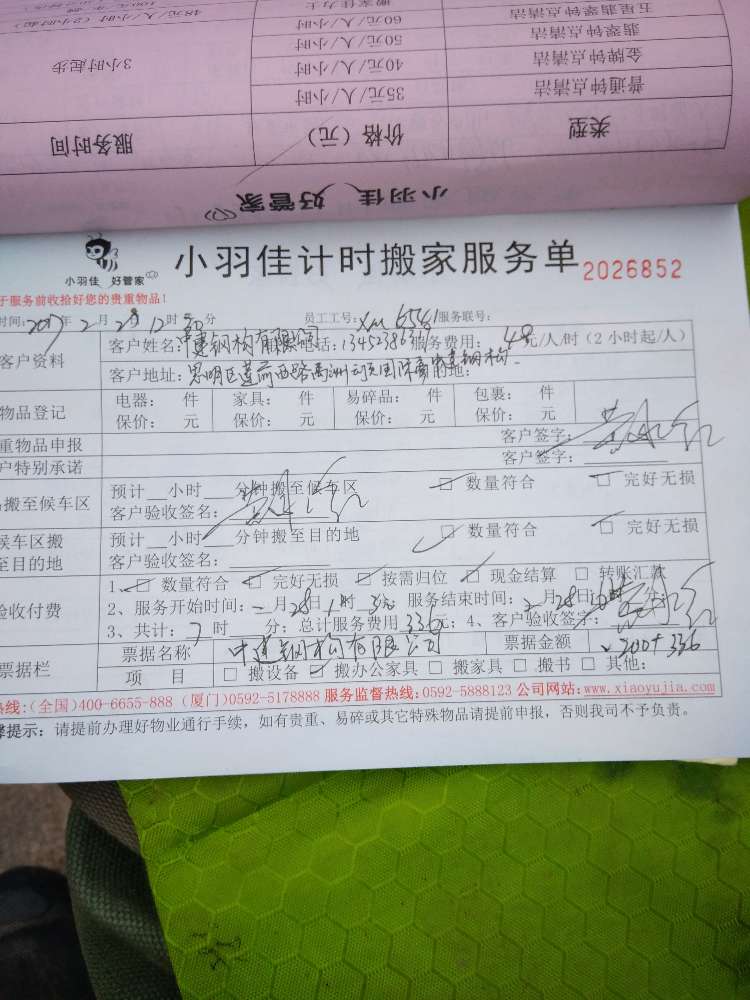 搬家佳力士
48元/人/时(2小时起)
五星翡翠钟点清洁 60元/人/小时
翡翠钟点清洁 50元/人/小时
金牌钟点清洁 40元/人/小时 3小时起步
普通钟点清洁 35元/人/小时
类型 价格(元) 服务时间
小羽佳 好管家
小羽佳 好管家
小羽佳计时搬家服务单 2026852
于服务前收拾好您的贵重物品!
时间:2017年2月28日12时 分 员工工号: 服务联号:
客户资料 客户姓名:中建钢构有限公司 电话: 服务费用:48元/人/时(2小时起/人)
客户地址:思明区莲前西路 目的地:
物品登记 电器: 件 家具: 件 易碎品: 件 包裹: 件
保价: 元 保价: 元 保价: 元 保价: 元
重物品申报 客户签字:
户特别承诺 客户签字:
搬至候车区 预计__小时__分钟搬至候车区 □ 数量符合 □ 完好无损
客户验收签名:
候车区搬 预计__小时__分钟搬至目的地 □ 数量符合 □ 完好无损
至目的地 客户验收签名:
验收付费 1、□ 数量符合 □ 完好无损 □ 按需归位 □ 现金结算 □ 转账汇款
2、服务开始时间:2月28日1时 分 服务结束时间:2月28日 时 分;
3、共计:7时__分;总计服务费用336元;4、客户验收签字:
票据栏 票据名称 中建钢构有限公司 票据金额 200+336
项 目 □ 搬设备 □ 搬办公家具 □ 搬家具 □ 搬书 □ 其他:
热线:(全国)400-6655-888 (厦门)0592-5178888 服务监督热线:0592-5888123 公司网站:www.xiaoyujia.com
馨提示:请提前办理好物业通行手续,如有贵重、易碎或其它特殊物品请提前申报,否则我司不予负责。